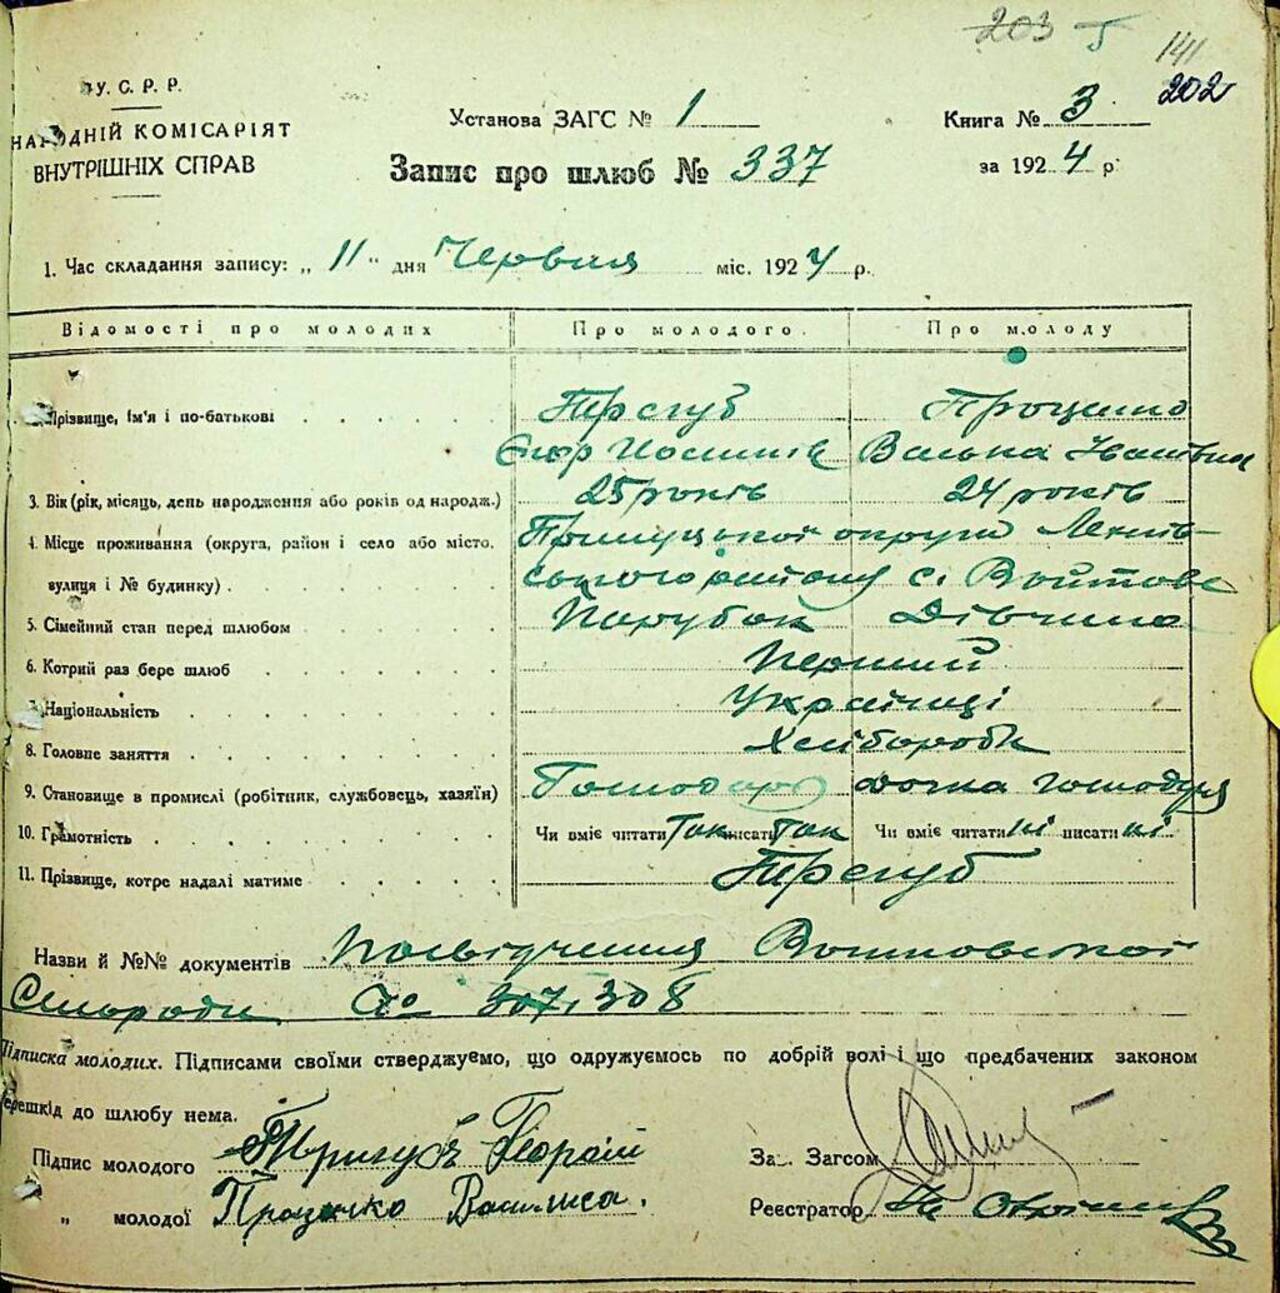 203 141
202
У. С. Р. Р.
НАРОДНІЙ КОМІСАРІЯТ
ВНУТРІШНІХ СПРАВ
Установа ЗАГС № 1
Книга № 3
Запис про шлюб № 337
за 1924 р.
1. Час складання запису: „ 11 " дня Червня міс. 1924 р.
Відомості про молодих Про молодого. Про молоду
Прізвище, Ім'я і по-батькові Трегуб Проценко
Єгор Иосипів Васька Іванівна
3. Вік (рік, місяць, день народження або років од народж.) 25 років 24 років
4. Місце проживання (округа, район і село або місто, Прилуцької округи
вулиця і № будинку) району с. Войтове
5. Сімейний стан перед шлюбом Парубок Дівчина
6. Котрий раз бере шлюб Перший
7. Національність Українці
8. Головне заняття Хлібороби
9. Становище в промислі (робітник, службовець, хазяїн) Господар дочка господаря
10. Грамотність Чи вміє читати Так писати Так Чи вміє читати ні писати ні
11. Прізвище, котре надалі матиме Трегуб
Назви й №№ документів Посвідчення Войтовської
Сільради № 307, 308
Підписка молодих. Підписами своїми стверджуємо, що одружуємось по добрій волі і що предбачених законом
перешкід до шлюбу нема.
Підпис молодого Тригубъ
За.. Загсом
„ молодої Проценко Васелиса.
Реєстратор